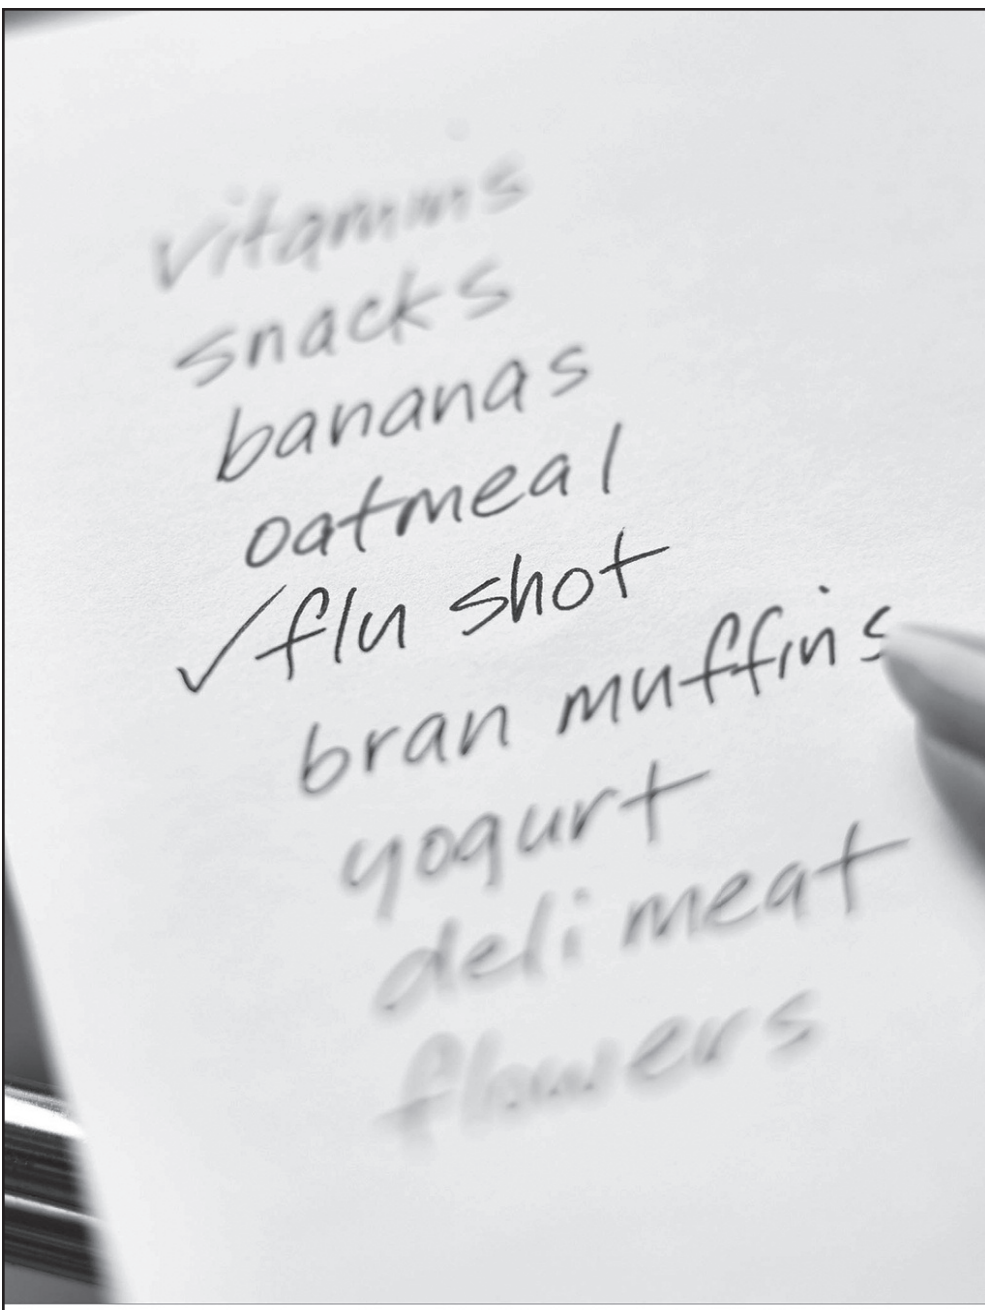 vitamins
snacks
bananas
oatmeal
✓flu shot
bran muffins
yogurt
deli meat
flowers